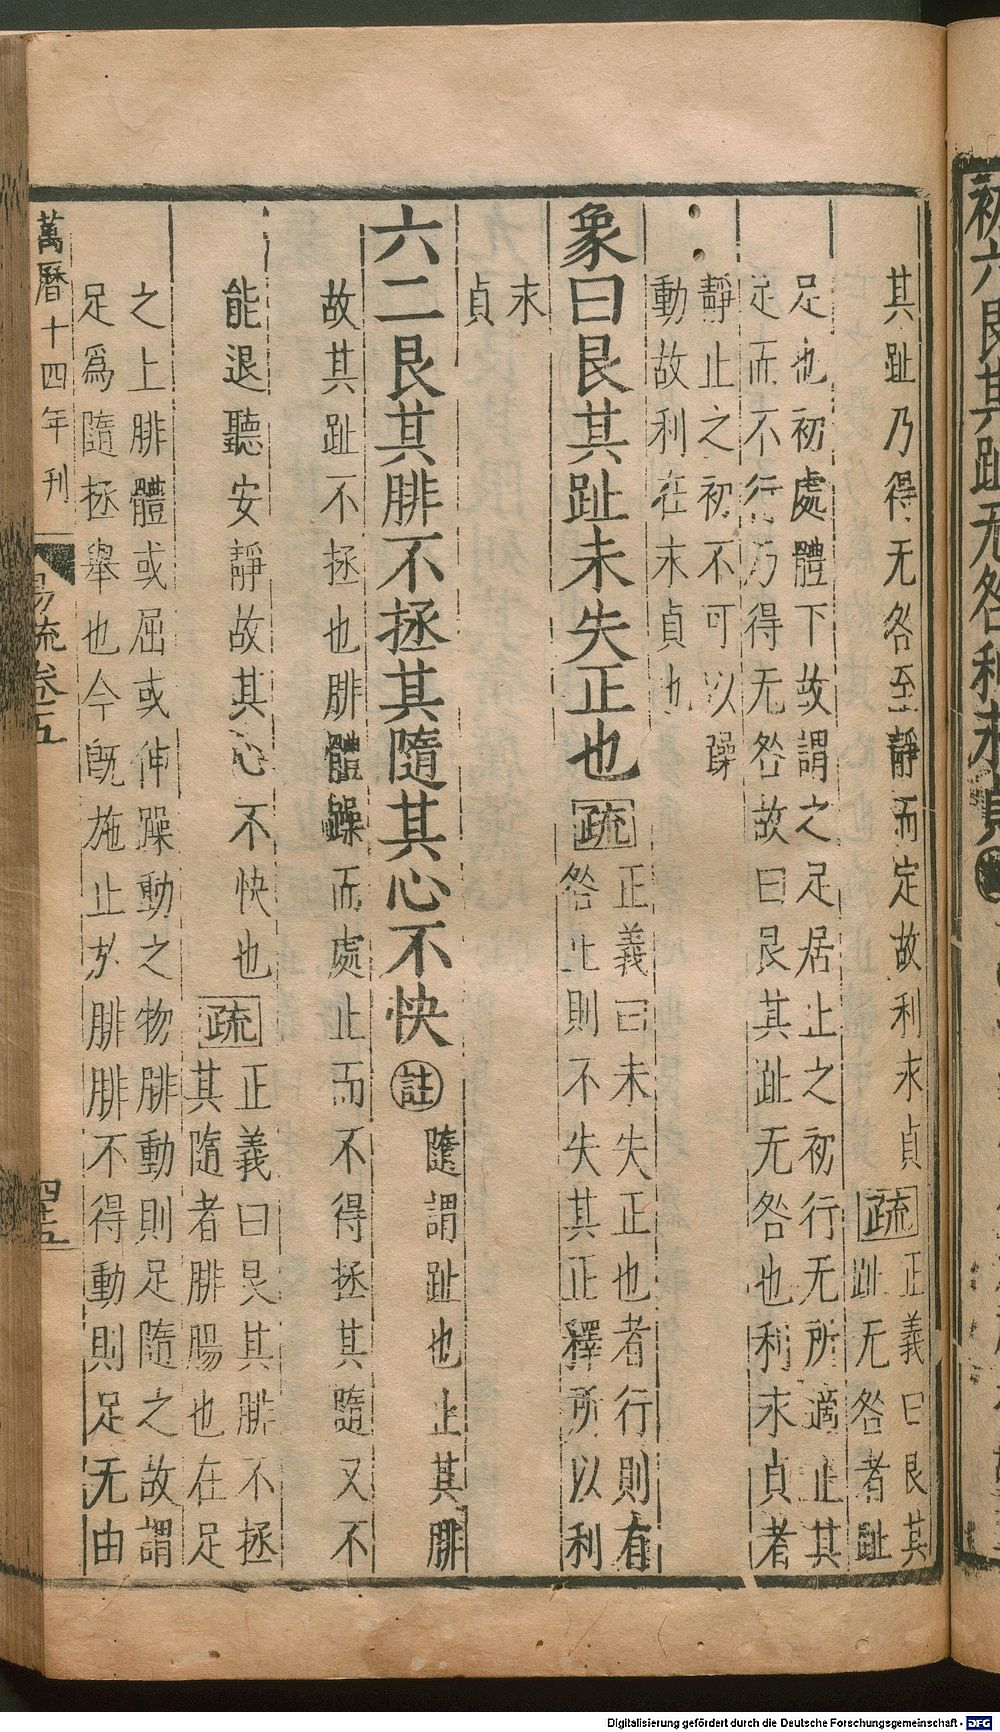 初六艮其趾无咎利永貞
其趾乃得无咎至靜而定故利永貞疏正義曰艮其
趾无咎者趾
足也初處體下故謂之足居止之初行无所適止其
足而不行乃得无咎故曰艮其趾无咎也利永貞者
靜止之初不可以躁
動故利在永貞也
象曰艮其趾未失正也疏正義曰未失正也者行則有
咎止則不失其正釋所以利
永
貞
六二艮其腓不拯其隨其心不快註隨謂趾也止其腓
故其趾不拯也腓體躁而處止而不得拯其隨又不
能退聽安靜故其心不快也疏正義曰艮其腓不拯
其隨者腓腸也在足
之上腓體或屈或伸躁動之物腓動則足隨之故謂
足爲隨拯舉也今旣施止於腓腓不得動則足无由
萬曆十四年刊
易疏卷五
四十五
Digitalisierung gefördert durch die Deutsche Forschungsgemeinschaft - DFG